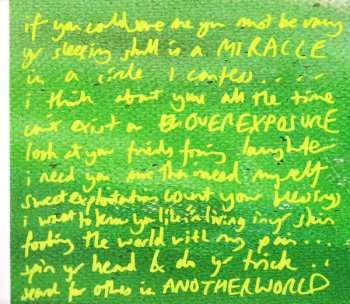 if you could me you must be
yr sleeping is a MIRACLE
in a circle I confess.....
i think about you all the time
can't exist on OVEREXPOSURE
look at your laughter
i need you than need myself
sweet exploitation count your blessings
i want to know you like living in yr skin
the world with my pain...
spin yr head & do yr trick..
search for others in ANOTHERWORLD